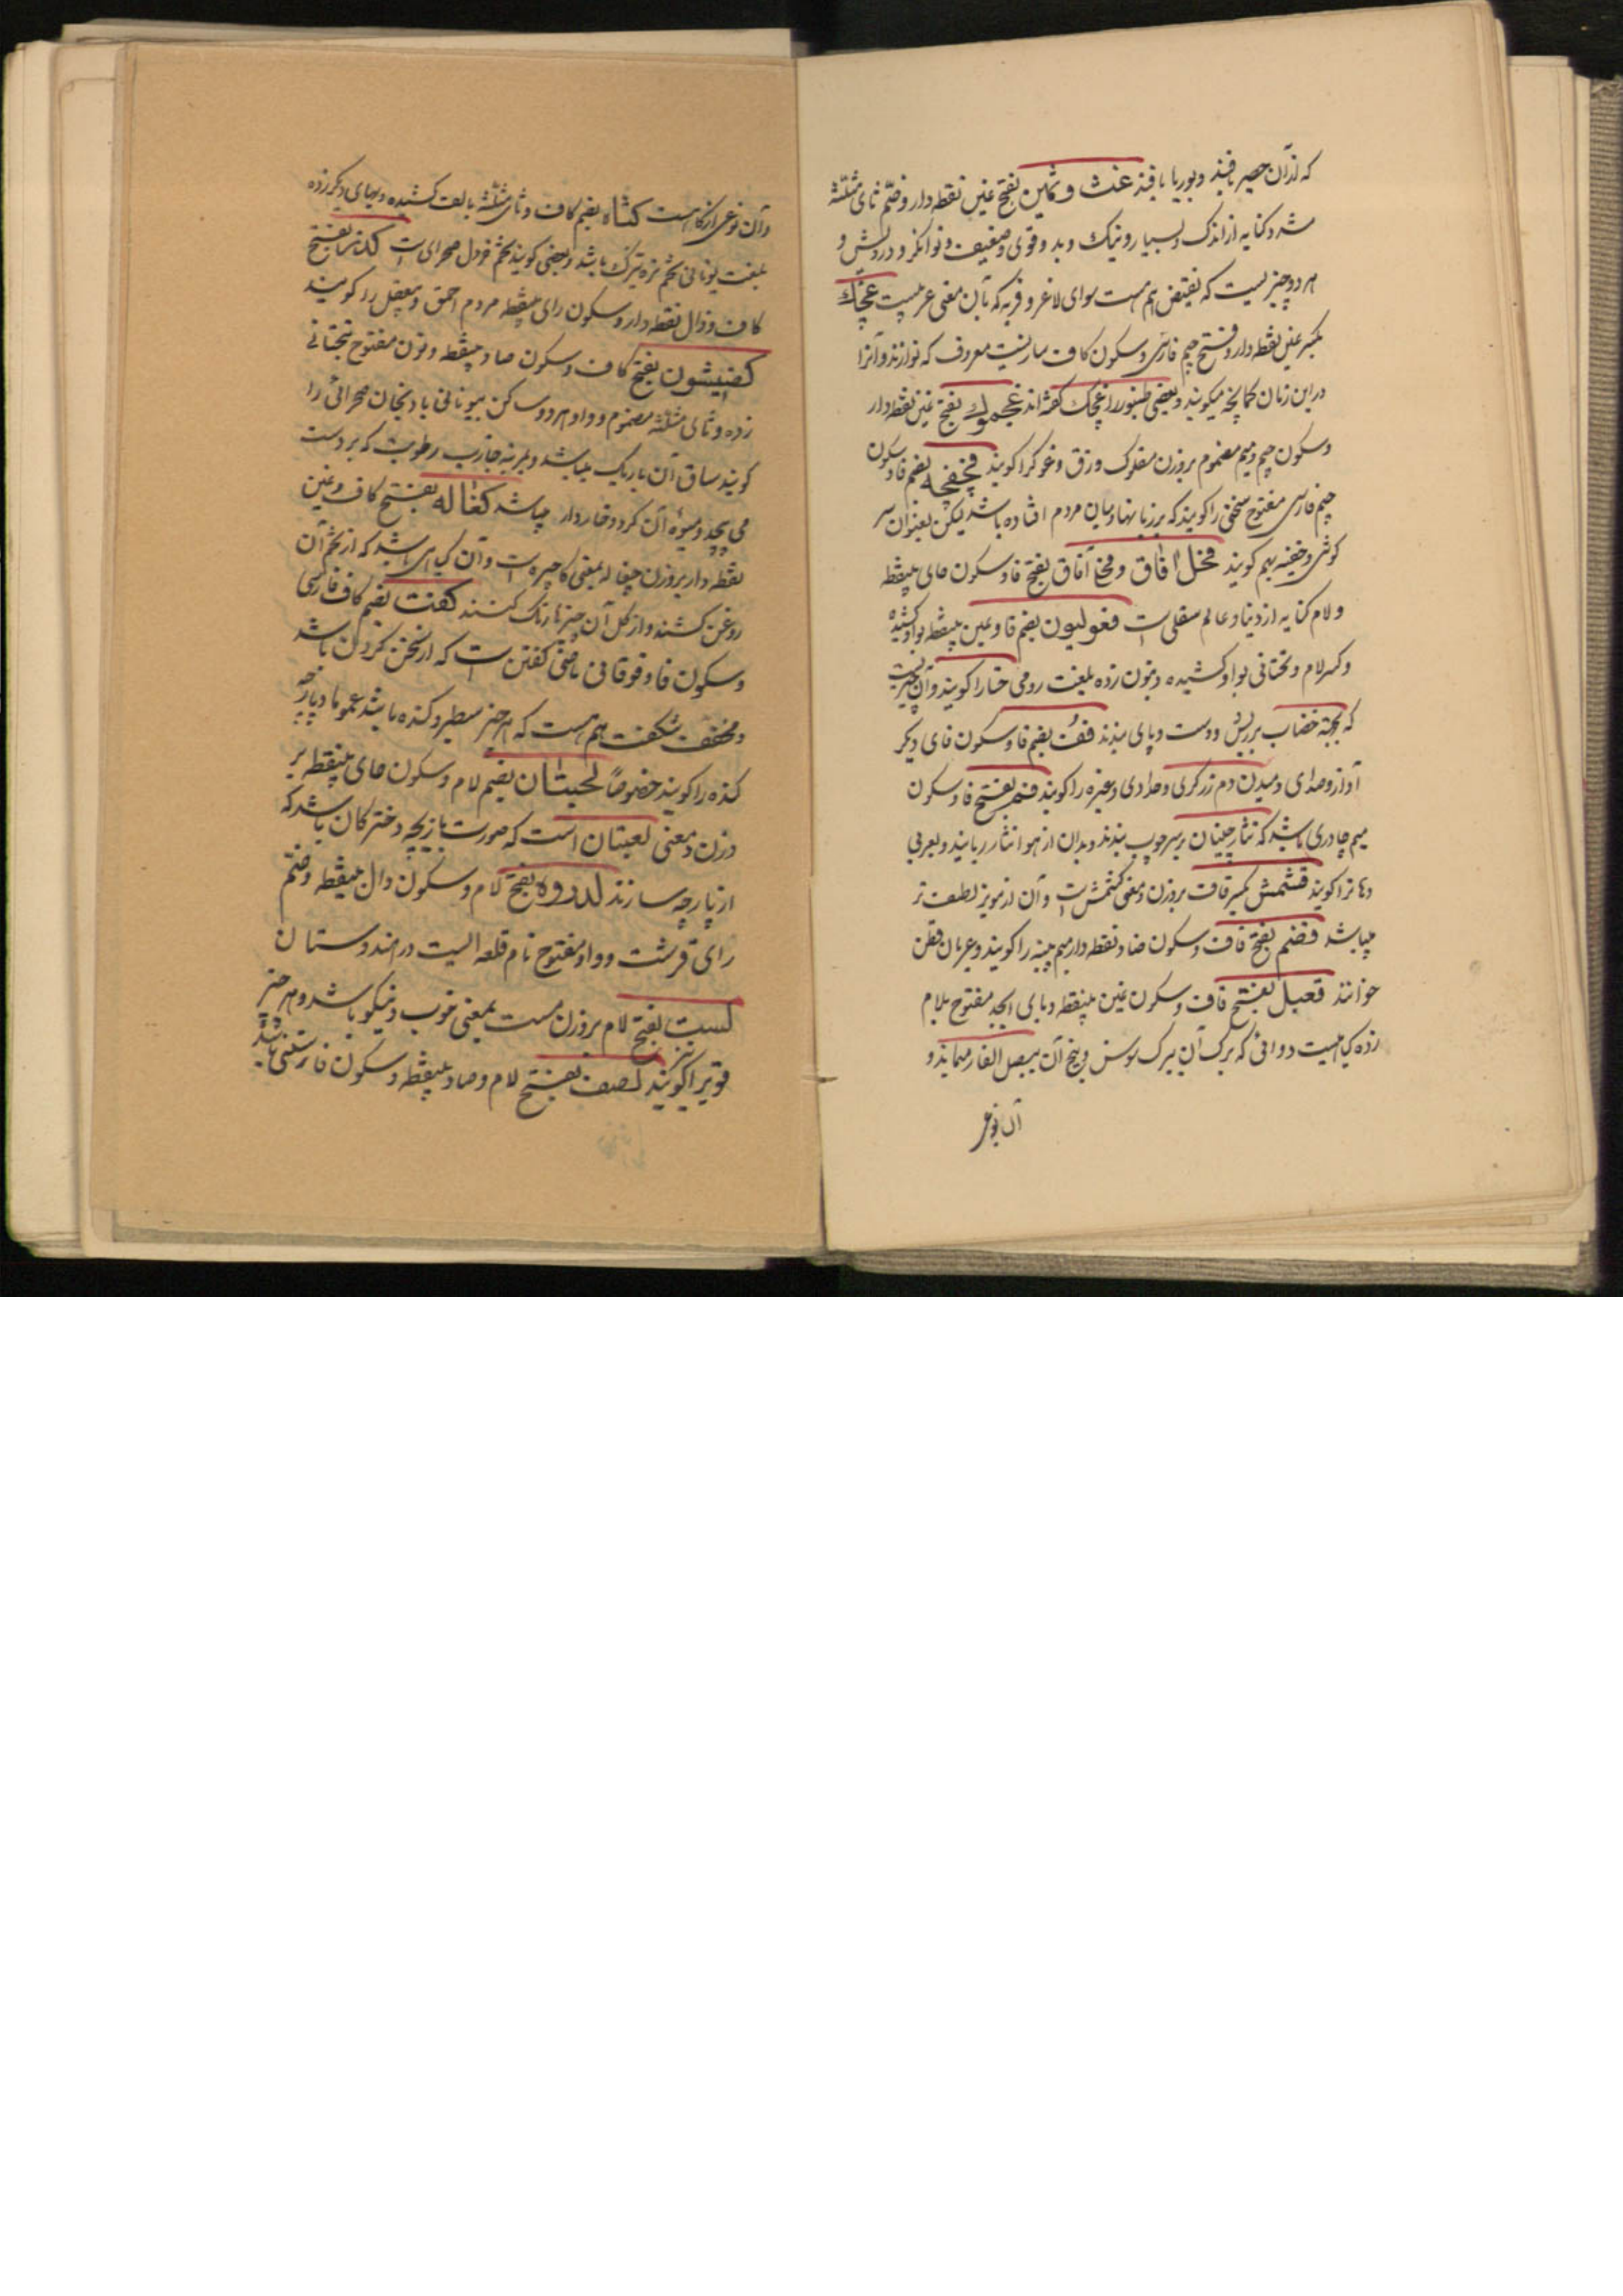 که از آن حصیر بافند و بوریا بافند غث و ثمین بفتح غین نقطه دار و ضم ثای مثلثه
مشدد کنایه از اندک و بسیار و نیک و بد و قوی و ضعیف و توانکر و درویش و
هر دو چیزیست که نقیض هم هست سوای لاغر و فربه که بآن معنی عربیست غچک
بکسر غین نقطه دار و فتح جیم فارسی و سکون کاف سازیست معروف که نوازند و آنرا
در این زمان کمانچه میکویند و بعضی طنبور را غچک کفته اند غجموک بفتح غین نقطه دار
و سکون جیم و میم مضموم بروزن مفلوک وزق و غوک را کویند فچفچه بضم فا و سکون
جیم فارسی مفتوح سخنی را کویند که بر زبانها و میان مردم افتاده باشد لیکن بعنوان سر
کوشی و خفیه بهم کویند فحل آفاق و فحل آفاق بفتح فا و سکون حای بینقطه
و لام کنایه از دنیا و عالم سفلی است فغولیون بضم فا و غین بینقطه بواو کشیده
و کسر لام و تحتانی بواو کشیده و بنون زده بلغت رومی حنا را کویند و آن چیزیست
که بجهة خضاب بر ریش و دست و پای بندند ففف بضم فا و سکون فای دیکر
آواز و صدای دمیدن دم زرکری و حدادی و غیره را کویند فنم بفتح فا و سکون
میم چادری باشد که نثار چینان بر سر چوب بندند و بدان از هوا نثار ربایند و بعربی
قشمش بکسر قاف بروزن و معنی کشمش است و آن از مویز لطیف تر
میباشد قضم بفتح قاف و سکون ضاد نقطه دار میم پنبه را کویند و عربان قطن
خوانند قعبل بفتح قاف و سکون عین بینقطه و بای ابجد مفتوح بلام
زده کیاهیست دوائی که برک آن ببرک سوسن و بیخ آن ببصل الفار میماند و
آن نوعی
و آن نوعی از کاهست کثاه بضم کاف و ثای مثلثه بالف کشیده و بهای دیکر زده
بلغت یونانی تخم تره تیزک باشد و بعضی کویند تخم خردل صحرای است کذر بفتح
کاف و ذال نقطه دار و سکون رای بینقطه مردم احمق و بیعقل را کویند
کصنیثون بفتح کاف و سکون صاد بینقطه و نون مفتوح بتحتانی
زده و ثای مثلثه مضموم و واو هر دو ساکن بیونانی بادنجان صحرائی را
کویند ساق آن باریک میباشد و بمرتبه جاذب رطوبت که بر دست
می چسپد و میوه آن کرد و خاردار میباشد کغاله بفتح کاف و غین
نقطه دار بروزن چغاله بمعنی کاجیره است و آن کیاهی باشد که از تخم آن
روغن کشند و از کل آن چیزها رنک کنند کفت بضم کاف فارسی
و سکون فا و فوقانی ماضی کفتن است که از سخن کردن باشد
و مخفف شکفت هم هست که هر چیز سطبر و کنده باشد عموما و پارچه
کنده را کویند خصوصاً لحبتان بضم لام و سکون حای بینقطه بر
وزن و معنی لعبتان است که صورت بازیچه دخترکان باشد که
از پارچه سازند لدروه بفتح لام و سکون دال بینقطه و ضم
رای قرشت و واو مفتوح نام قلعه ایست در هندوستان
لست بفتح لام بروزن مست بمعنی خوب و نیکو باشد و هر چیز
قوی را کویند لصف بفتح لام و صاد بینقطه و سکون فا